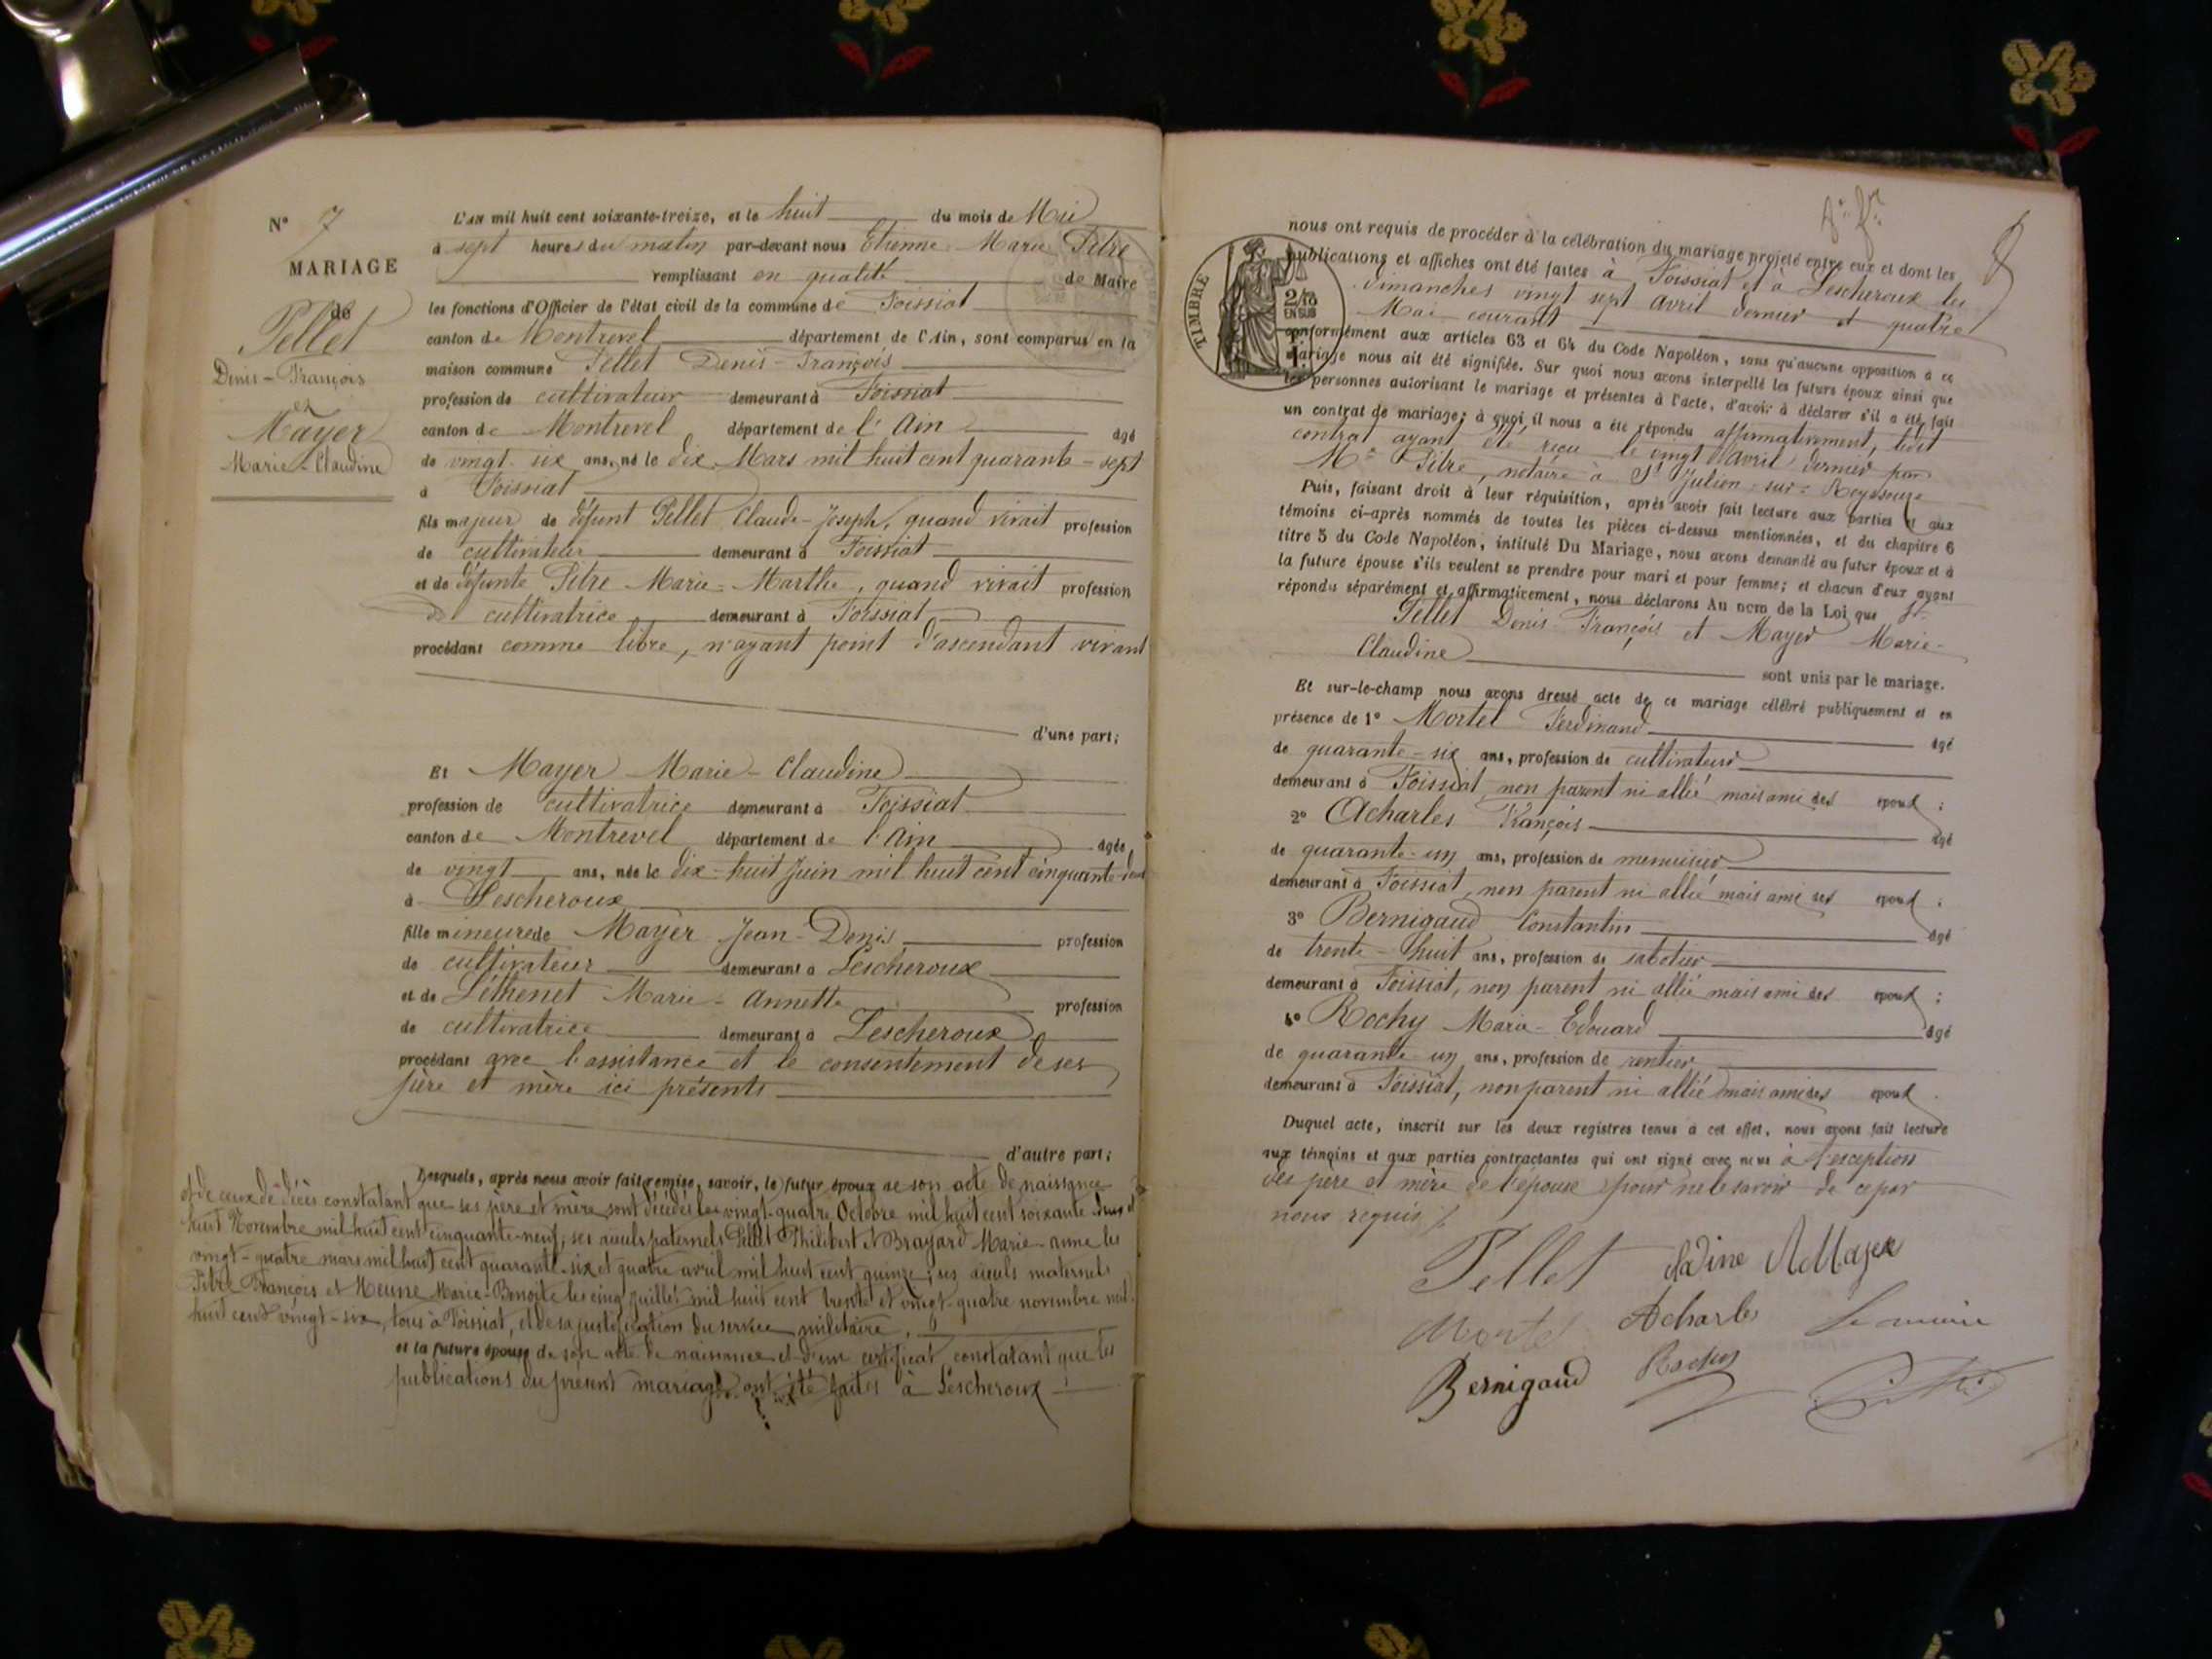 N° 7
MARIAGE
de
Pellet
Denis-François
et
Mayer
Marie-Claudine
L'an mil huit cent soixante-treize, et le huit du mois de Mai
à sept heures du matin par-devant nous Etienne Marie Pitre
remplissant en qualité de Maire
les fonctions d'Officier de l'état civil de la commune de Foissiat
canton de Montrevel département de l'Ain, sont comparus en la
maison commune Pellet Denis-François
profession de cultivateur demeurant à Foissiat
canton de Montrevel département de l'Ain âgé
de vingt-six ans, né le dix Mars mil huit cent quarante-sept
à Foissiat
fils majeur de défunt Pellet Claude-Joseph, quand vivait profession
de cultivateur demeurant à Foissiat
et de défunte Pitre Marie-Marthe, quand vivait profession
de cultivatrice demeurant à Foissiat
procédant comme libre, n'ayant point d'ascendant vivant
d'une part;
Et Mayer Marie-Claudine
profession de cultivatrice demeurant à Foissiat
canton de Montrevel département de l'Ain âgée
de vingt ans, née le dix-huit Juin mil huit cent cinquante-deux
à Lescheroux
fille mineure de Mayer Jean-Denis profession
de cultivateur demeurant à Lescheroux
et de Péthenet Marie-Annette profession
de cultivatrice demeurant à Lescheroux
procédant avec l'assistance et le consentement de ses
père et mère ici présents
d'autre part;
Lesquels, après nous avoir fait remise, savoir, le futur époux de son acte de naissance
et de ceux de décès constatant que ses père et mère sont décédés les vingt-quatre Octobre mil huit cent soixante-deux et
huit Novembre mil huit cent cinquante-neuf; ses aïeuls paternels Pellet Philibert et Brayard Marie-anne les
vingt-quatre mars mil huit cent quarante-six et quatre avril mil huit cent quinze; ses aïeuls maternels
Pitre François et Meune Marie-Benoite les cinq juillet mil huit cent trente et vingt-quatre novembre mil
huit cent vingt-six, tous à Foissiat, et de sa justification du service militaire,
et la future épouse de son acte de naissance et d'un certificat constatant que les
publications du présent mariage ont été faites à Lescheroux
TIMBRE
2/10
EN SUS
1 F.
nous ont requis de procéder à la célébration du mariage projeté entre eux et dont les
publications et affiches ont été faites à Foissiat et à Lescheroux les
Dimanches vingt sept Avril dernier et quatre
Mai courant
conformément aux articles 63 et 64 du Code Napoléon, sans qu'aucune opposition à ce
mariage nous ait été signifiée. Sur quoi nous avons interpellé les futurs époux ainsi que
les personnes autorisant le mariage et présentes à l'acte, d'avoir à déclarer s'il a été fait
un contrat de mariage; à quoi il nous a été répondu affirmativement, ledit
contrat ayant été reçu le vingt Avril dernier par
Me Pitre, notaire à St Julien-sur-Reyssouze
Puis, faisant droit à leur réquisition, après avoir fait lecture aux parties et aux
témoins ci-après nommés de toutes les pièces ci-dessus mentionnées, et du chapitre 6
titre 5 du Code Napoléon, intitulé Du Mariage, nous avons demandé au futur époux et à
la future épouse s'ils veulent se prendre pour mari et pour femme; et chacun d'eux ayant
répondu séparément et affirmativement, nous déclarons Au nom de la Loi que
Pellet Denis François et Mayer Marie-
Claudine
sont unis par le mariage.
Et sur-le-champ nous avons dressé acte de ce mariage célébré publiquement et en
présence de 1° Mortel Ferdinand âgé
de quarante-six ans, profession de cultivateur
demeurant à Foissiat non parent ni allié mais ami des époux;
2° Acharles François âgé
de quarante-un ans, profession de menuisier
demeurant à Foissiat, non parent ni allié mais ami des époux;
3° Bernigaud Constantin âgé
de trente-huit ans, profession de sabotier
demeurant à Foissiat, non parent ni allié mais ami des époux;
4° Rochy Marie-Edouard âgé
de quarante-un ans, profession de rentier
demeurant à Foissiat, non parent ni allié mais ami des époux.
Duquel acte, inscrit sur les deux registres tenus à cet effet, nous avons fait lecture
aux témoins et aux parties contractantes qui ont signé avec nous à l'exception
des père et mère de l'épouse pour ne le savoir de ce par
nous requis
Pellet Mayer
Mortel Acharles Le maire
Bernigaud Rochy